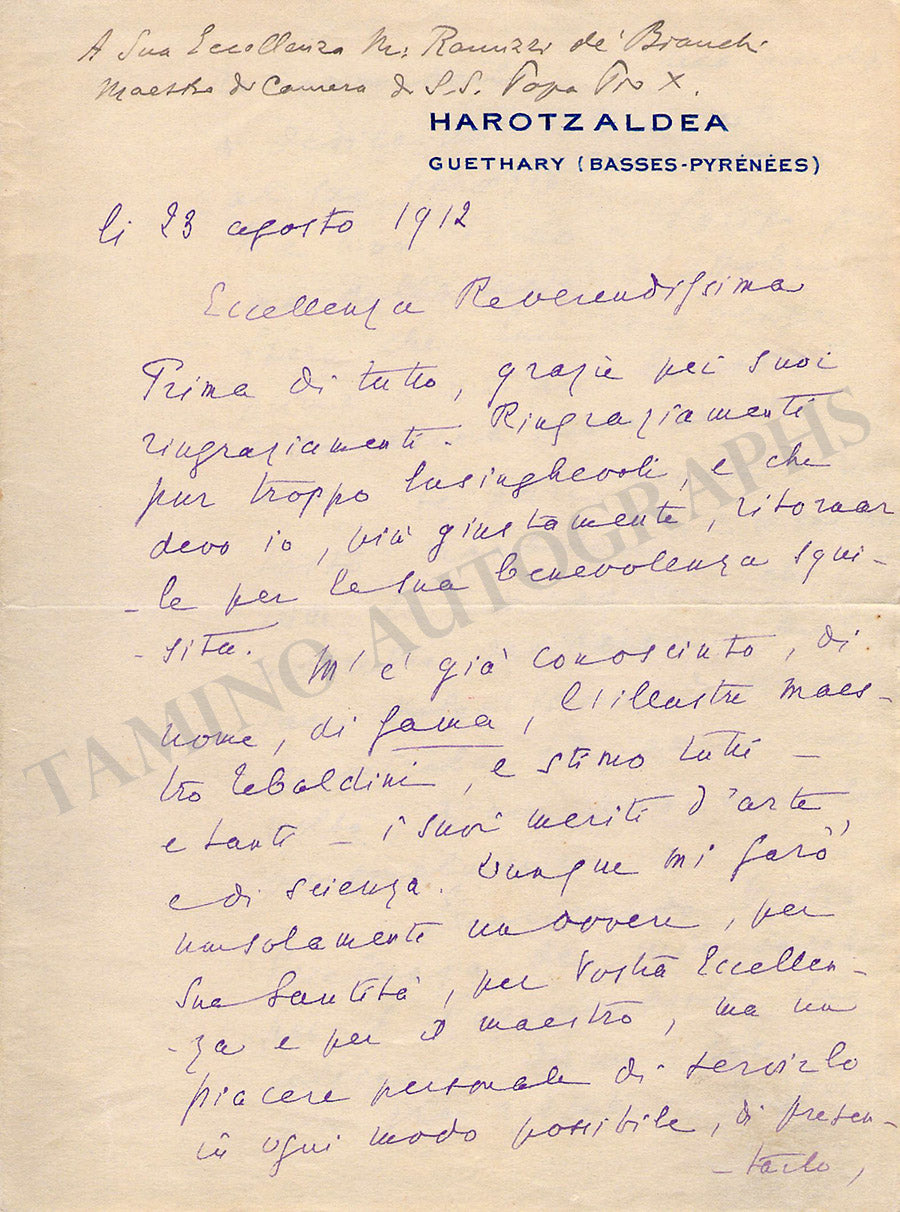 A Sua Eccellenza M: Ranuzzi de' Bianchi
Maestro di Camera di S.S. Papa Pio X.
HAROTZ ALDEA
GUETHARY (BASSES-PYRÉNÉES)
li 23 agosto 1912
Eccellenza Reverendissima
Prima di tutto, grazie pei suoi
ringraziamenti. Ringraziamenti
pur troppo lusinghevoli, e che
devo io, più giustamente, ritornar
-le per la sua benevolenza squi-
-sita.
M'è già conosciuto, di
nome, di fama, l'illustre maes-
tro Tebaldini, e stimo tutti -
e tanti - i suoi meriti d'arte
e di scienza. Dunque mi farò
non solamente un dovere, per
Sua Santità, per Vostra Eccellen-
-za e per il maestro, ma un
piacere personale di servirlo
in ogni modo possibile, di presen-
-tarlo,
TAMINO AUTOGRAPHS